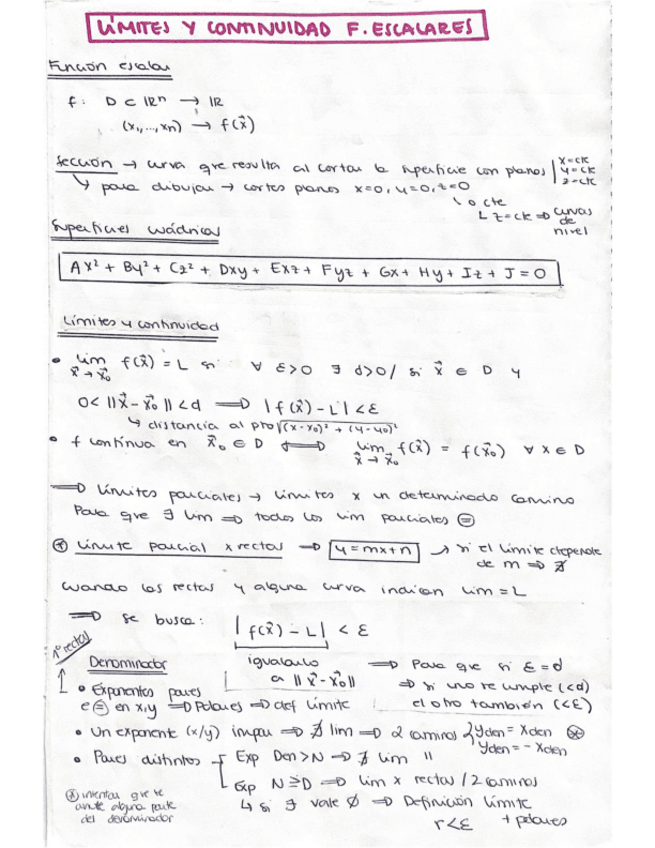 LÍMITES Y CONTINUIDAD F. ESCALARES
Función escalar
f: D ⊂ ℝⁿ → ℝ
(x₁,...,xn) → f(x⃗)
Sección → curva que resulta al cortar la superficie con planos | x=ck y=ck z=ck
↳ para dibujar → cortes planos x=0, y=0, z=0
↘ o cte
∟ z=ck ⇒ curvas de nivel
Superficies cuádricas
Ax² + By² + Cz² + Dxy + Exz + Fyz + Gx + Hy + Iz + J = 0
Límites y continuidad
• lim x⃗→x⃗₀ f(x⃗) = L si ∀ ε>0 ∃ d>0 / si x⃗ ∈ D y
0< ||x⃗-x⃗₀|| <d ⇒ |f(x⃗)-L| <ε
↳ distancia al pto √(x-x₀)² + (y-y₀)²
• f continua en x⃗₀ ∈ D ⇔ lim x⃗→x⃗₀ f(x⃗) = f(x⃗₀) ∀ x ∈ D
⇒ Límites parciales → límites x un determinado camino
Para que ∃ lim ⇒ todos los lim parciales ⊜
⊛ Límite parcial x rectas ⇒ y=mx+n → si el límite depende de m ⇒ ∄
Cuando las rectas y alguna curva indican lim = L
⇒ se busca: |f(x⃗)-L| < ε
1º rectas
igualarlo a ||x⃗-x⃗₀|| ⇒ Para que si ε=d
⇒ si uno se cumple (<d) el otro también (<ε)
Denominador
• Exponentes pares e ⊜ en x,y ⇒ Polares ⇒ def límite
• Un exponente (x/y) impar ⇒ ∄ lim ⇒ 2 caminos { yden = xden yden = -xden ⊛
• Pares distintos [ Exp Den > N ⇒ ∄ lim ''
Exp N ≥ D ⇒ lim x rectas / 2 caminos
↳ si ∃ vale ∅ ⇒ Definición límite
r<ε + polares
⊛ intentar que se anule alguna parte del denominador